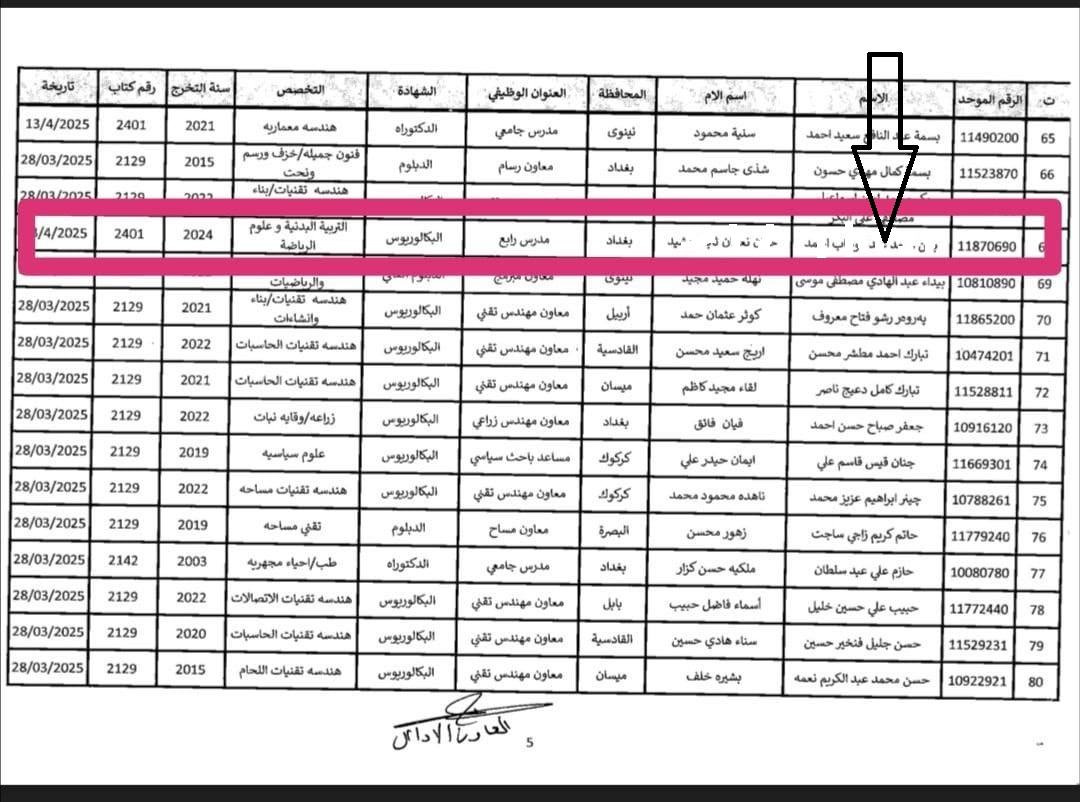 ت الرقم الموحد الاسم اسم الام المحافظة العنوان الوظيفي الشهادة التخصص سنة التخرج رقم كتاب تاريخة
65 11490200 بسمة عبد النافع سعيد احمد سنية محمود نينوى مدرس جامعي الدكتوراه هندسه معماريه 2021 2401 13/4/2025
66 11523870 بسمة كمال مهدي حسون شذى جاسم محمد بغداد معاون رسام الدبلوم فنون جميله/خزف ورسم ونحت 2015 2129 28/03/2025
هندسته تقنيات/بناء 2022 2129 28/03/2025
11870690 بغداد مدرس رابع البكالوريوس التربية البدنية و علوم الرياضة 2024 2401 /4/2025
69 10810890 بيداء عبد الهادي مصطفى موسى نهلة حميد مجيد نينوى معاون مبرمج والرياضيات
70 11865200 پەروەر رشو فتاح معروف كوثر عثمان حمد أربيل معاون مهندس تقني البكالوريوس هندسته تقنيات/بناء وانشاءات 2021 2129 28/03/2025
71 10474201 تبارك احمد مطشر محسن اريج سعيد محسن القادسية معاون مهندس تقني البكالوريوس هندسه تقنيات الحاسبات 2022 2129 28/03/2025
72 11528811 تبارك كامل دعيج ناصر لقاء مجيد كاظم ميسان معاون مهندس تقني البكالوريوس هندسه تقنيات الحاسبات 2021 2129 28/03/2025
73 10916120 جعفر صباح حسن احمد فيان فائق بغداد معاون مهندس زراعي البكالوريوس زراعه/وقايه نبات 2022 2129 28/03/2025
74 11669301 جنان قيس قاسم علي ايمان حيدر علي كركوك مساعد باحث سياسي البكالوريوس علوم سياسيه 2019 2129 28/03/2025
75 10788261 چینر ابراهيم عزيز محمد ناهده محمود محمد كركوك معاون مهندس تقني البكالوريوس هندسه تقنيات مساحه 2022 2129 28/03/2025
76 11779240 حاتم كريم زاجي ساجت زهور محسن البصرة معاون مساح الدبلوم تقني مساحه 2019 2129 28/03/2025
77 10080780 حازم علي عبد سلطان ملكيه حسن كزار بغداد مدرس جامعي الدكتوراه طب/احياء مجهريه 2003 2142 28/03/2025
78 11772440 حبيب علي حسين خليل أسماء فاضل حبيب بابل معاون مهندس تقني البكالوريوس هندسه تقنيات الاتصالات 2022 2129 28/03/2025
79 11529231 حسن جليل فنخير حسين سناء هادي حسين القادسية معاون مهندس تقني البكالوريوس هندسه تقنيات الحاسبات 2020 2129 28/03/2025
80 10922921 حسن محمد عبد الكريم نعمه بشيره خلف ميسان معاون مهندس تقني البكالوريوس هندسه تقنيات اللحام 2015 2129 28/03/2025
5